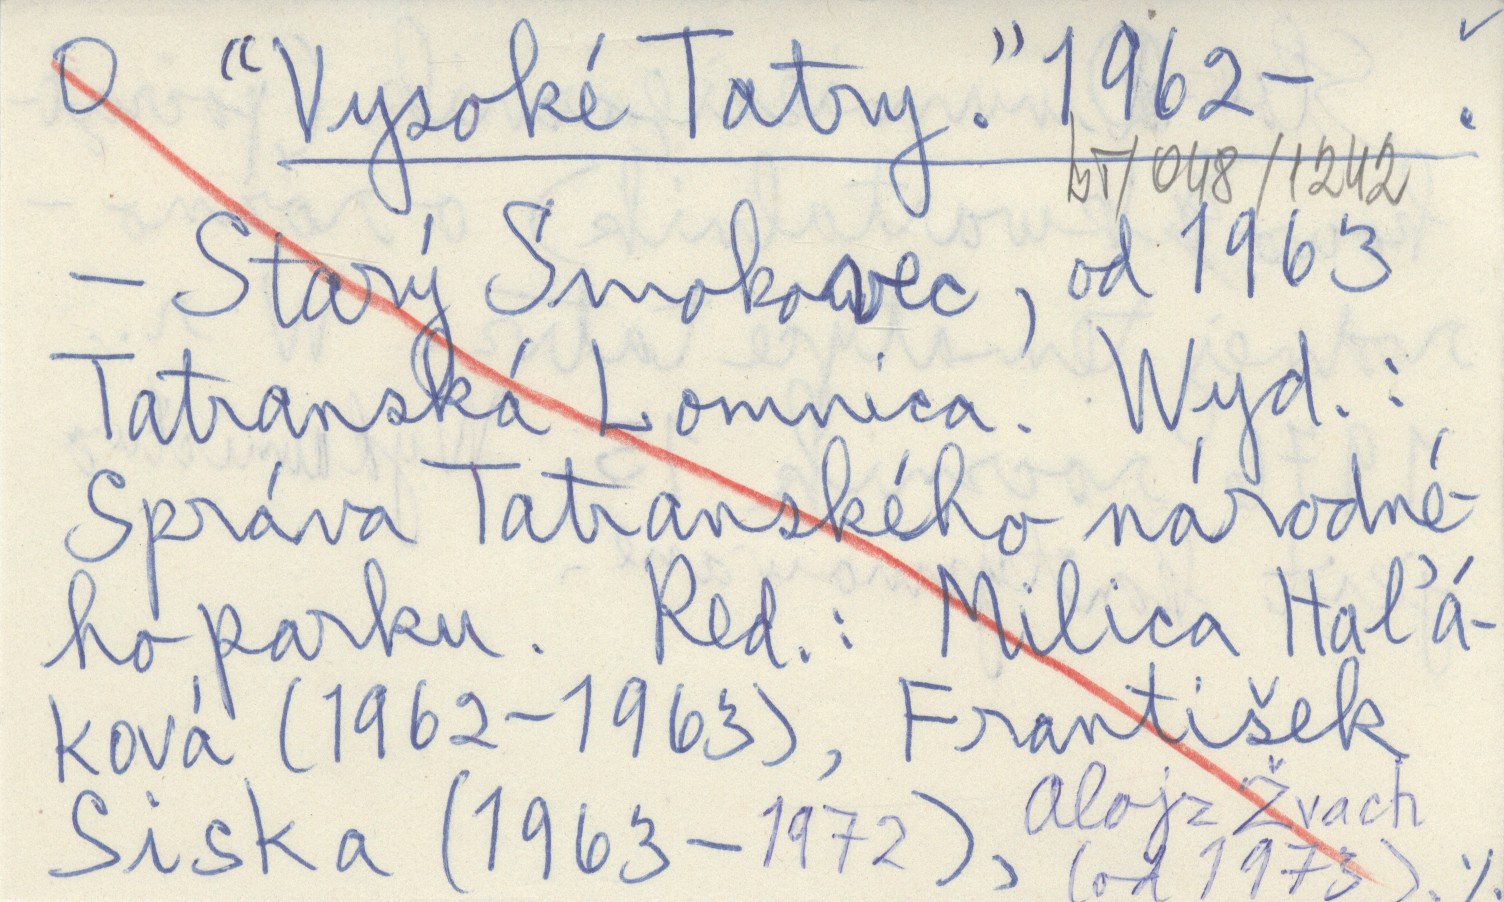 O "Vysoké Tatry." 1962-.
bT/048/1242
- Starý Smokovec, od 1963
Tatranská Lomnica. Wyd.:
Správa Tatranského národné-
ho parku. Red.: Milica Hal'á-
ková (1962-1963), František
Siska (1963-1972), Alojz Žvach
(od 1973). ./.